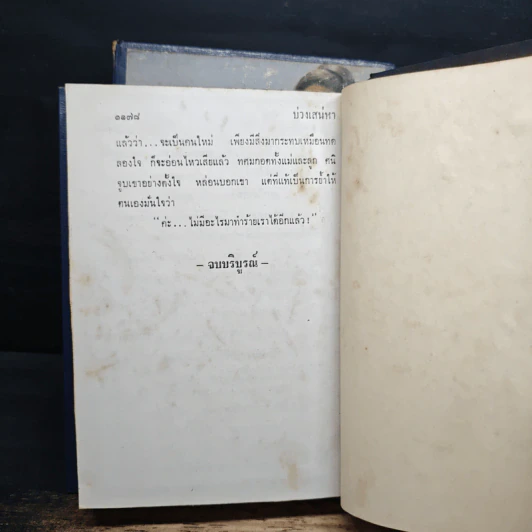 ๑๑๗๘ บ่วงเสน่หา
แล้วว่า...จะเป็นคนใหม่ เพียงมีสิ่งมากระทบเหมือนทด
ลองใจ ก็จะอ่อนไหวเสียแล้ว ทศมกอดทั้งแม่และลูก คนึ
จูบเขาอย่างตั้งใจ หล่อนบอกเขา แต่ที่แท้เป็นการย้ำให้
ตนเองมั่นใจว่า
“ค่ะ...ไม่มีอะไรมาทำร้ายเราได้อีกแล้ว!”
– จบบริบูรณ์ –